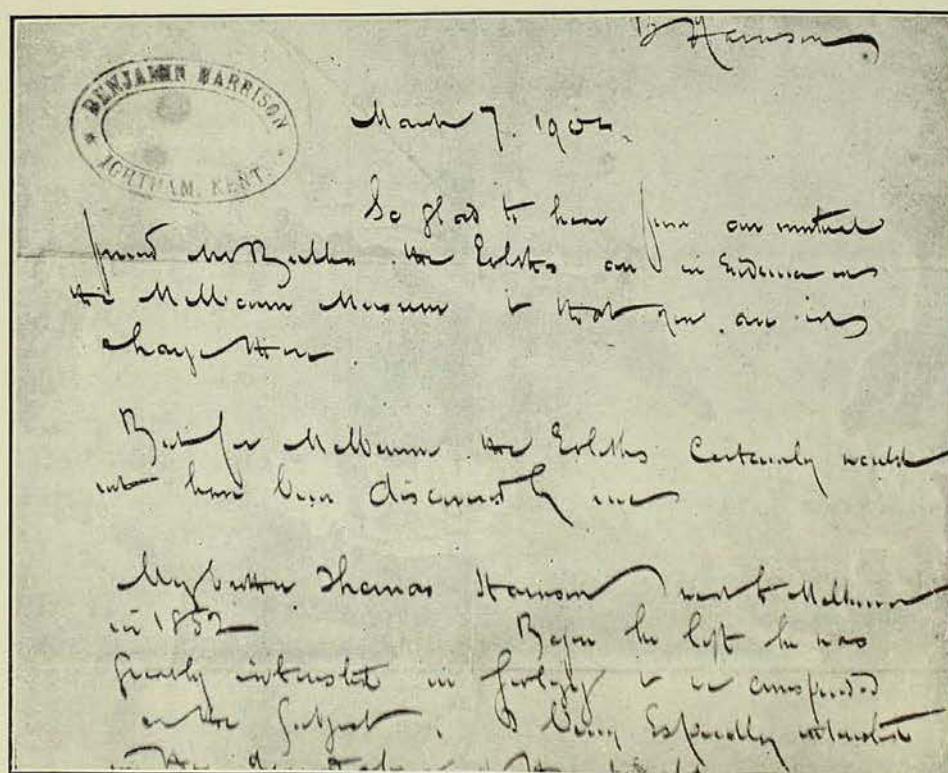 B Harrison
BENJAMIN HARRISON
* IGHTHAM, KENT. *
March 7. 1904.
So glad to hear from our mutual
friend Mr Bullen the Eoliths are in Evidence in
the Melbourne Museum & that you are in
charge there.
But for Melbourne the Eoliths Certainly would
not have been discovered by me
My brother Thomas Harrison went to Melbourne
in 1852 Before he left he was
greatly interested in Geology & we corresponded
on the Subject. I being Especially interested
in the